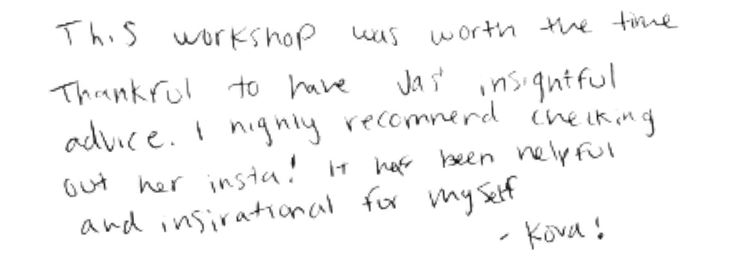 This workshop was worth the time
Thankful to have Jas' insightful
advice. I highly recommend checking
out her insta! It has been helpful
and insirational for myself
- Kova!